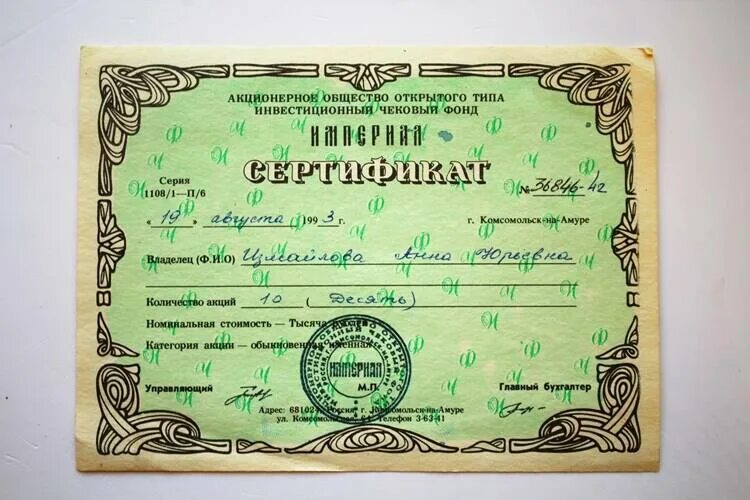 АКЦИОНЕРНОЕ ОБЩЕСТВО ОТКРЫТОГО ТИПА
ИНВЕСТИЦИОННЫЙ ЧЕКОВЫЙ ФОНД
ИМПЕРИАЛ
СЕРТИФИКАТ
Серия
1108/1—П/6
№ 36846-42
« 19 » августа 1993 г.
г. Комсомольск-на-Амуре
Владелец (Ф.И.О) Измайлова Анна Юрьевна
Количество акций 10 (Десять)
Номинальная стоимость — Тысяча рублей
Категория акции — обыкновенная именная
ИМПЕРИАЛ
М.П.
Управляющий
Главный бухгалтер
Адрес: Россия г. Комсомольск-на-Амуре
ул. Телефон 3-63-41